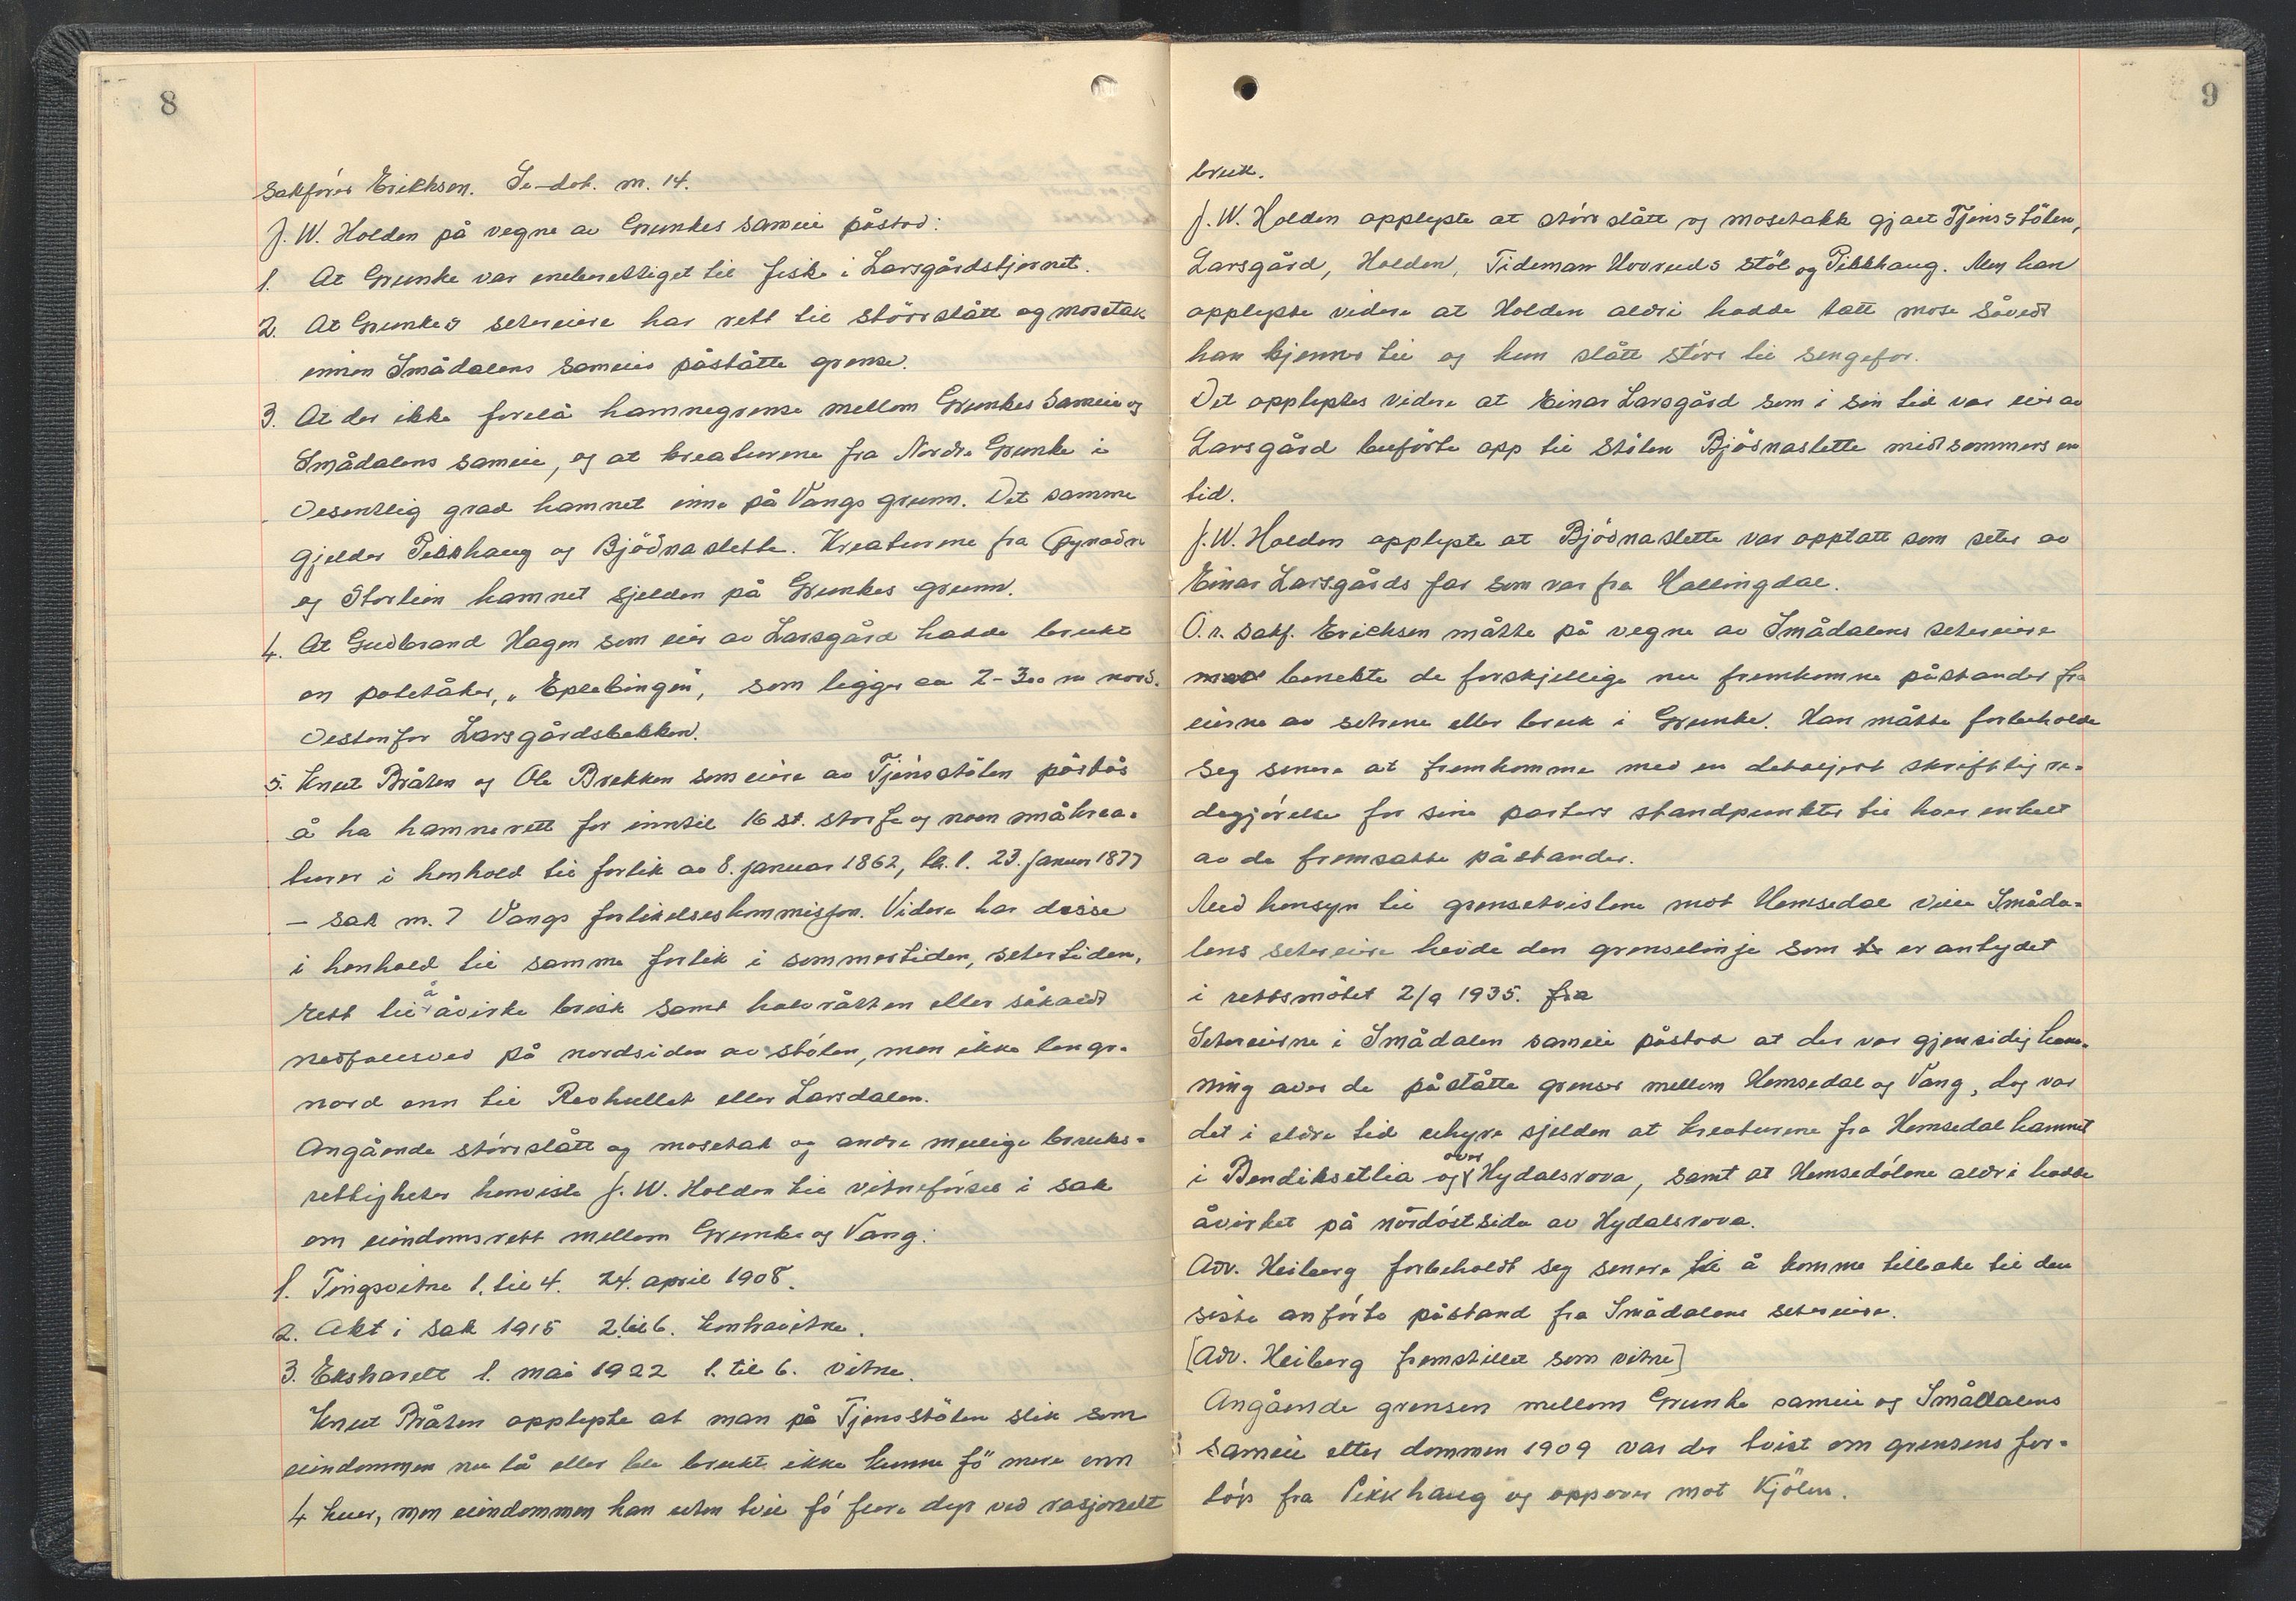 8
Sakfører Erichsen. Se dok. nr. 14.
J. W. Holden på vegne av Grunkes sameie påstod:
1. At Grunke var eneberettiget til fiske i Larsgårdstjernet.
2. At Grunkes setereiere har rett til störrslått og mosetak
innen Smådalens sameies påståtte grense.
3. At der ikke forelå hamnegrense mellom Grunkes Sameie og
Smådalens sameie, og at kreaturene fra Nordre Grunke i
vesentlig grad hamnet inne på Vangs grunn. Det samme
gjelder Pikkhaug og Bjödnaslette. Kreaturene fra
og Storlien hamnet sjelden på Grunkes grunn.
4. At Gudbrand Hagen som eier av Larsgård hadde brukt
en potetåker, "Eplebingen", som ligger ca 2-300 m nord-
vestenfor Larsgårdsbekken.
5. Knut Bråten og Ole Brekken som eiere av Tjernsstölen påstås
å ha hamnerett for inntil 16 st. storfe og noen småkrea-
turer i henhold til forlik av 8. januar 1862, tgl. 23. januar 1877
- sak nr. 7 Vangs forlikelseskommisjon. Videre har disse
i henhold til samme forlik i sommertiden, setertiden,
rett til å åvirke brisk samt halvråtten eller såkaldt
nedfallsved på nordsiden av stölen, men ikke lengre
nord enn til Revhullet eller Larsdalen.
Angående störrslått og mosetak og andre mulige bruks-
rettigheter henviste J. W. Holden til vitneförsel i sak
om eiendomsrett mellom Grunke og Vang:
1. Tingsvitne 1. til 4. 24. april 1908.
2. Akt i sak 1915 2. til 6. kontravitne.
3. Ekstrarett 1. mai 1922 1. til 6. vitne.
Knut Bråten opplyste at man på Tjernsstölen slik som
eiendommen nu lå eller ble brukt ikke kunne fö mere enn
4 kuer, men eiendommen kan uten tvil fö flere dyr ved rasjonelt
9
bruk.
J. W. Holden opplyste at störrslått og mosetakk gjaldt Tjernsstölen,
Larsgård, Holden, Tideman Hovruds stöl og Pikkhaug. Men han
opplyste videre at Holden aldri hadde tatt mose såvidt
han kjenner til og kun slått störr til sengefor.
Det opplystes videre at Einar Larsgård som i sin tid var eier av
Larsgård buförte opp til stölen Bjödnaslette midtsommers en
tid.
J. W. Holden opplyste at Bjödnaslette var opptatt som seter av
Einar Larsgårds far som var fra Hallingdal.
O.r. sakf. Erichsen måtte på vegne av Smådalens setereiere
benekte de forskjellige nu fremkomne påstander fra
eierne av setrene eller bruk i Grunke. Han måtte forbeholde
seg senere at fremkomme med en detaljert skriftlig re-
degjörelse for sine parters standpunkter til hver enkelt
av de fremsatte påstander.
Med hensyn til grensetvistene mot Hemsedal vil Småda-
lens setereiere hevde den grenselinje som er antydet
i rettsmötet 2/9 1935. fra
Setereierne i Smådalen sameie påstod at der var gjensidig ham-
ning over de påståtte grenser mellom Hemsedal og Vang, dog var
det i eldre tid uhyre sjelden at kreaturene fra Hemsedal hamnet
i Bendiksetlia og over Hydalsrova, samt at Hemsedölene aldri hadde
åvirket på nordöstside av Hydalsrova.
Adv. Heiberg forbeholdt seg senere til å komme tilbake til den
siste anförte påstand fra Smådalens setereiere.
[Adv. Heiberg fremstillet som vitne]
Angående grensen mellom Grunke sameie og Smådalens
Sameie etter dommen 1909 var der tvist om grensens for-
löp fra Pikkhaug og oppover mot Kjölen.